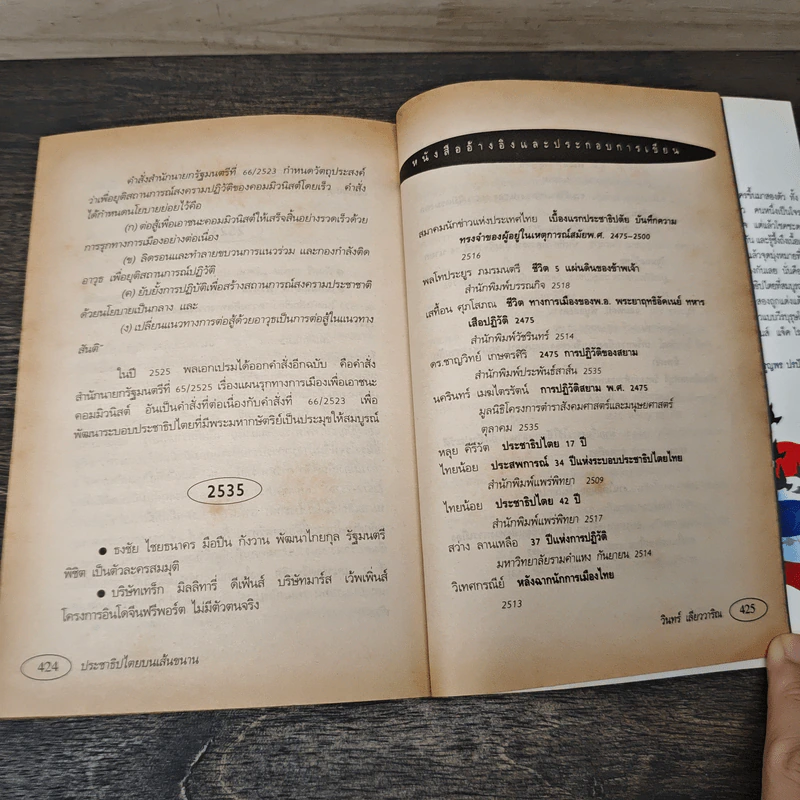 คำสั่งสำนักนายกรัฐมนตรีที่ 66/2523 กำหนดวัตถุประสงค์
ว่าเพื่อยุติสถานการณ์สงครามปฏิวัติของคอมมิวนิสต์โดยเร็ว คำสั่ง
ได้กำหนดนโยบายย่อยไว้คือ
(ก) ต่อสู้เพื่อเอาชนะคอมมิวนิสต์ให้เสร็จสิ้นอย่างรวดเร็วด้วย
การรุกทางการเมืองอย่างต่อเนื่อง
(ข) ลิดรอนและทำลายขบวนการแนวร่วม และกองกำลังติด
อาวุธ เพื่อยุติสถานการณ์ปฏิวัติ
(ค) ยับยั้งการปฏิบัติเพื่อสร้างสถานการณ์สงครามประชาชาติ
ด้วยนโยบายเป็นกลาง และ
(ง) เปลี่ยนแนวทางการต่อสู้ด้วยอาวุธเป็นการต่อสู้ในแนวทาง
สันติ
ในปี 2525 พลเอกเปรมได้ออกคำสั่งอีกฉบับ คือคำสั่ง
สำนักนายกรัฐมนตรีที่ 65/2525 เรื่องแผนรุกทางการเมืองเพื่อเอาชนะ
คอมมิวนิสต์ อันเป็นคำสั่งที่ต่อเนื่องกับคำสั่งที่ 66/2523 เพื่อ
พัฒนาระบอบประชาธิปไตยที่มีพระมหากษัตริย์เป็นประมุขให้สมบูรณ์
2535
● ธงชัย ไชยธนาคร มือปืน กังวาน พัฒนาไกยกุล รัฐมนตรี
พิชิต เป็นตัวละครสมมุติ
● บริษัทเทร็ก มิลลิทารี่ ดีเฟ้นส์ บริษัทมาร์ส เว้พเพิ่นส์
โครงการอินโดจีนฟรีพอร์ต ไม่มีตัวตนจริง
424 ประชาธิปไตยบนเส้นขนาน
หนังสืออ้างอิงและประกอบการเขียน
สมาคมนักข่าวแห่งประเทศไทย เบื้องแรกประชาธิปตัย บันทึกความ
ทรงจำของผู้อยู่ในเหตุการณ์สมัยพ.ศ. 2475-2500
2516
พลโทประยูร ภมรมนตรี ชีวิต 5 แผ่นดินของข้าพเจ้า
สำนักพิมพ์บรรณกิจ 2518
เสทื้อน ศุภโสภณ ชีวิต ทางการเมืองของพ.อ. พระยาฤทธิอัคเนย์ ทหาร
เสือปฏิวัติ 2475
สำนักพิมพ์วัชรินทร์ 2514
ดร.ชาญวิทย์ เกษตรศิริ 2475 การปฏิวัติของสยาม
สำนักพิมพ์ประพันธ์สาส์น 2535
นครินทร์ เมฆไตรรัตน์ การปฏิวัติสยาม พ.ศ. 2475
มูลนิธิโครงการตำราสังคมศาสตร์และมนุษยศาสตร์
ตุลาคม 2535
หลุย คีรีวัต ประชาธิปไตย 17 ปี
ไทยน้อย ประสพการณ์ 34 ปีแห่งระบอบประชาธิปไตยไทย
สำนักพิมพ์แพร่พิทยา 2509
ไทยน้อย ประชาธิปไตย 42 ปี
สำนักพิมพ์แพร่พิทยา 2517
สว่าง ลานเหลือ 37 ปีแห่งการปฏิวัติ
มหาวิทยาลัยรามคำแหง กันยายน 2514
วิเทศกรณีย์ หลังฉากนักการเมืองไทย
2513
วินทร์ เลียววาริณ 425